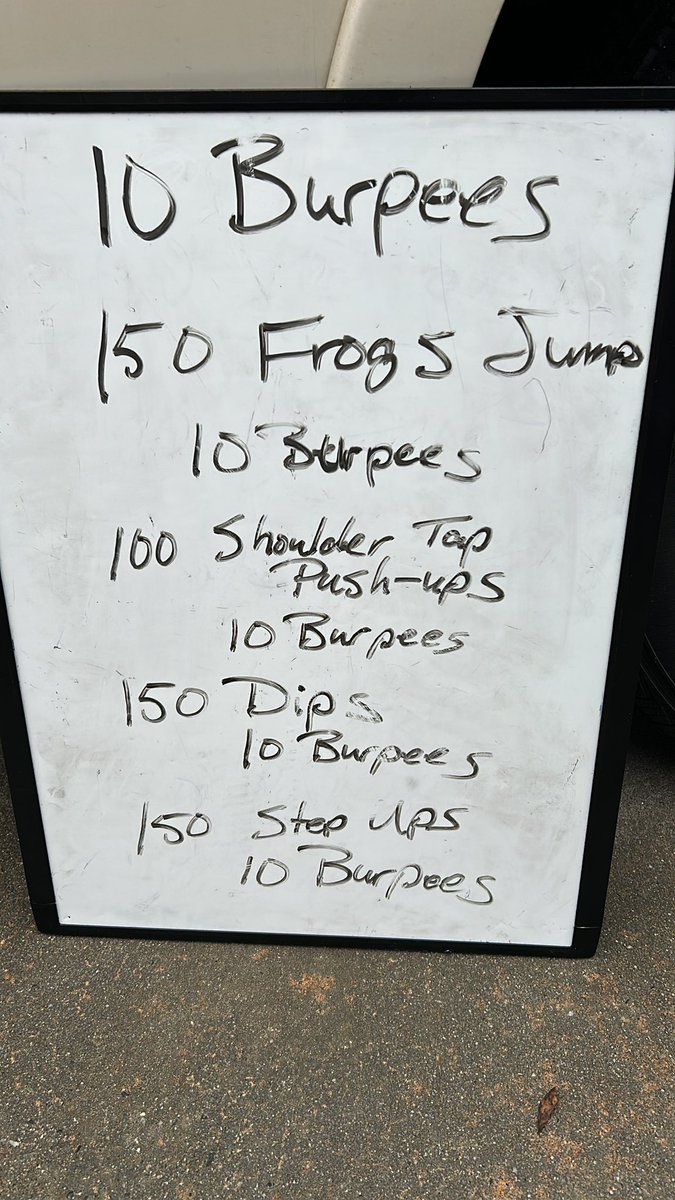 10 Burpees
150 Frogs Jump
10 Burpees
100 Shoulder Tap
Push-ups
10 Burpees
150 Dips
10 Burpees
150 Step Ups
10 Burpees